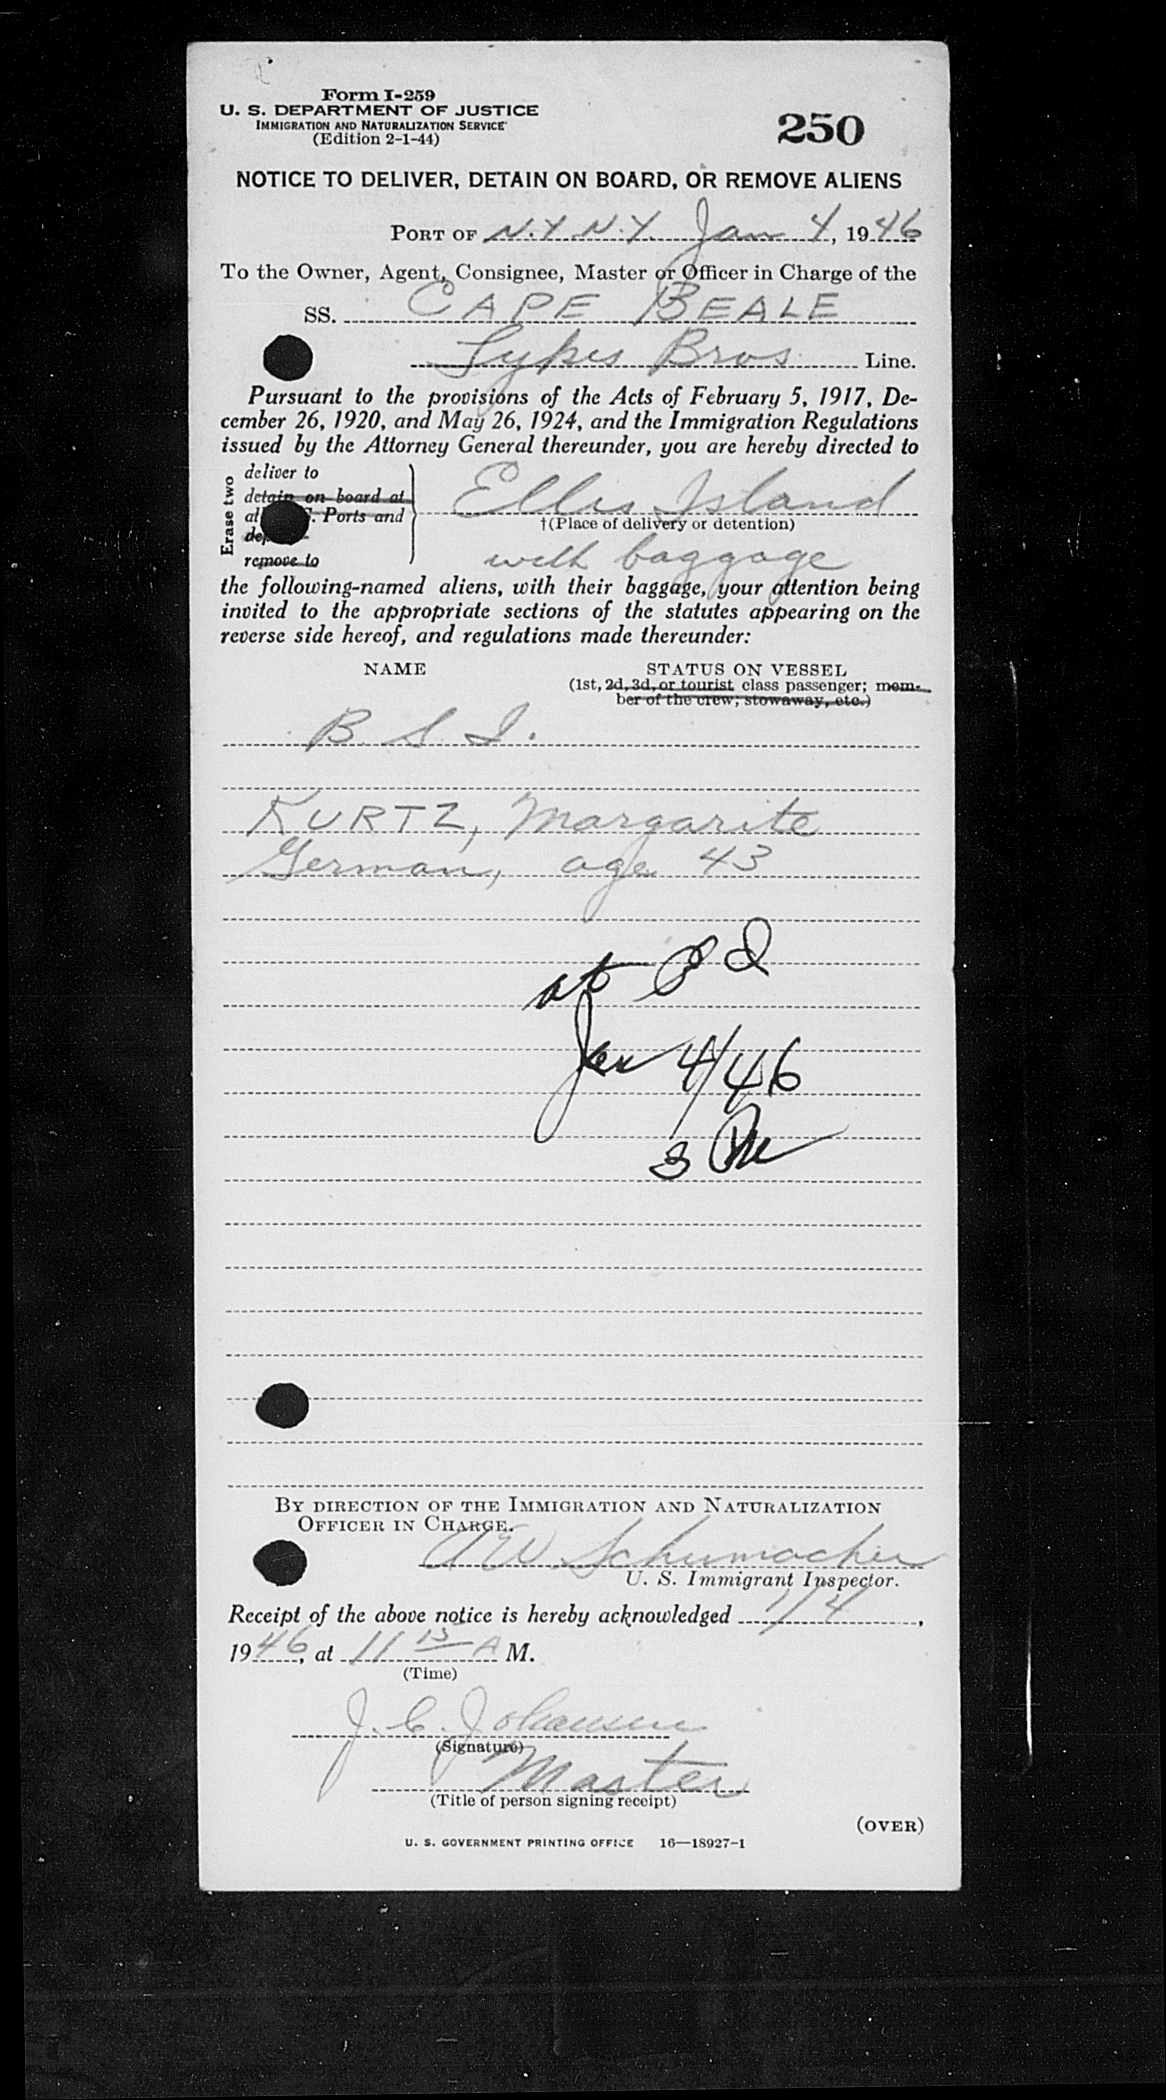 Form I-259
U. S. DEPARTMENT OF JUSTICE
IMMIGRATION AND NATURALIZATION SERVICE
(Edition 2-1-44)
250
NOTICE TO DELIVER, DETAIN ON BOARD, OR REMOVE ALIENS
PORT OF N.Y. N.Y. Jan 4, 1946
To the Owner, Agent, Consignee, Master or Officer in Charge of the
SS. CAPE BEALE
Sykes Bros Line.
Pursuant to the provisions of the Acts of February 5, 1917, De-
cember 26, 1920, and May 26, 1924, and the Immigration Regulations
issued by the Attorney General thereunder, you are hereby directed to
Erase two
deliver to
detain on board at
Ports and
remove to
Ellis Island
†(Place of delivery or detention)
with baggage
the following-named aliens, with their baggage, your attention being
invited to the appropriate sections of the statutes appearing on the
reverse side hereof, and regulations made thereunder:
NAME STATUS ON VESSEL
(1st, 2d, 3d, or tourist class passenger; mem-
ber of the crew; stowaway, etc.)
B. S. I.
KURTZ, Margarite
German, age 43
at E I
Jan 4/46
3 PM
BY DIRECTION OF THE IMMIGRATION AND NATURALIZATION
OFFICER IN CHARGE.
AW Schumacher
U. S. Immigrant Inspector.
Receipt of the above notice is hereby acknowledged 1/4,
1946, at 11 15 A M.
(Time)
J. C. Johansen
(Signature)
Master
(Title of person signing receipt)
(OVER)
U. S. GOVERNMENT PRINTING OFFICE 16—18927-1